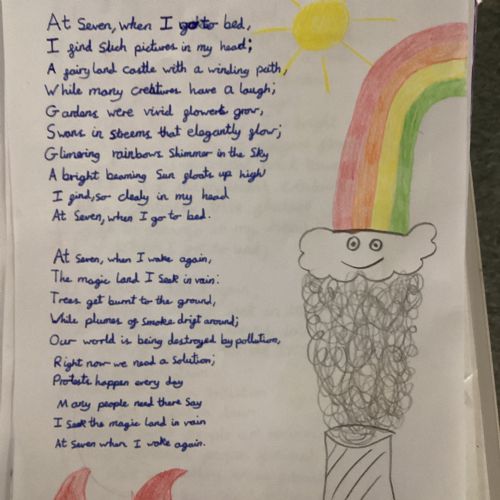 At Seven, when I go to bed,
I find Such pictures in my head;
A fairyland castle with a winding path,
While many creatures have a laugh;
Gardens were vivid flowers grow,
Swans in streems that elegantly flow;
Glimering rainbows Shimmer in the Sky
A bright beaming Sun floats up high
I find, so clealy in my head
At Seven, when I go to bed.
At Seven, when I wake again,
The magic land I Seek in vain:
Trees get burnt to the ground,
While plumes of smoke drift around;
Our world is being destroyed by pollution,
Right now we need a Solution;
Protests happen every day
Many people need there Say
I Seek the magic land in vain
At Seven when I wake again.